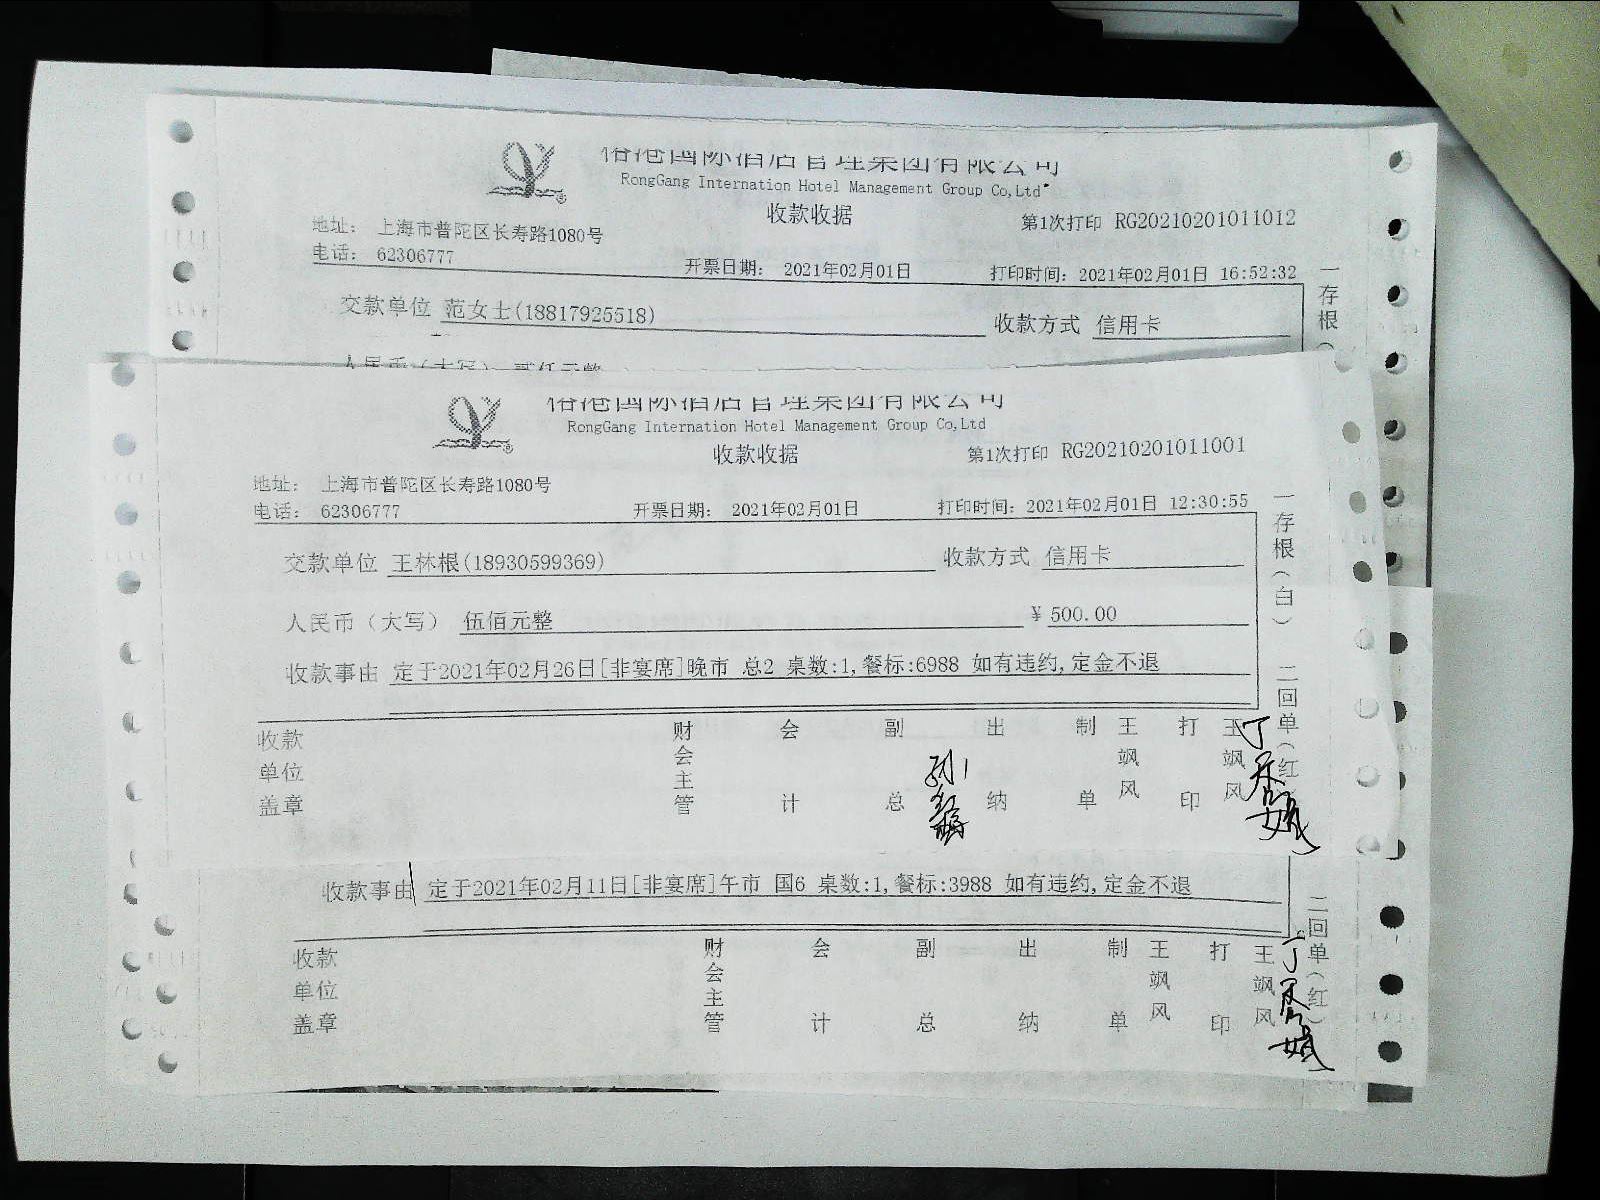 国际酒店管理集团有限公司
RongGang Internation Hotel Management Group Co,Ltd
收款收据
第1次打印 RG20210201011012
地址： 上海市普陀区长寿路1080号
电话： 62306777
开票日期： 2021年02月01日
打印时间：2021年02月01日 16:52:32
交款单位 范女士(18817925518)
收款方式 信用卡
一存根（
人民币（大写） 贰仟元整
国际酒店管理集团有限公司
RongGang Internation Hotel Management Group Co,Ltd
收款收据
第1次打印 RG20210201011001
地址： 上海市普陀区长寿路1080号
电话： 62306777
开票日期： 2021年02月01日
打印时间：2021年02月01日 12:30:55
交款单位 王林根(18930599369)
收款方式 信用卡
人民币（大写） 伍佰元整 ¥ 500.00
收款事由 定于2021年02月26日[非宴席]晚市 总2 桌数:1,餐标:6988 如有违约,定金不退
一存根（白） 二回单（红
收款单位盖章 财会主管 会计 副总 出纳 制单 王飒风 打印 王飒风
收款事由 定于2021年02月11日[非宴席]午市 国6 桌数:1,餐标:3988 如有违约,定金不退
二回单（红）
收款单位盖章 财会主管 会计 副总 出纳 制单 王飒风 打印 王飒风